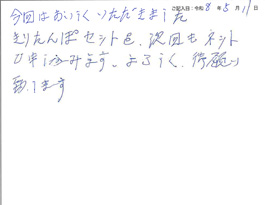 ご記入日：令和 8 年 5 月 11 日
今回はおいしくいただきました
きりたんぽセットを、次回もネット
で申し込みます。よろしく、御願い
致します